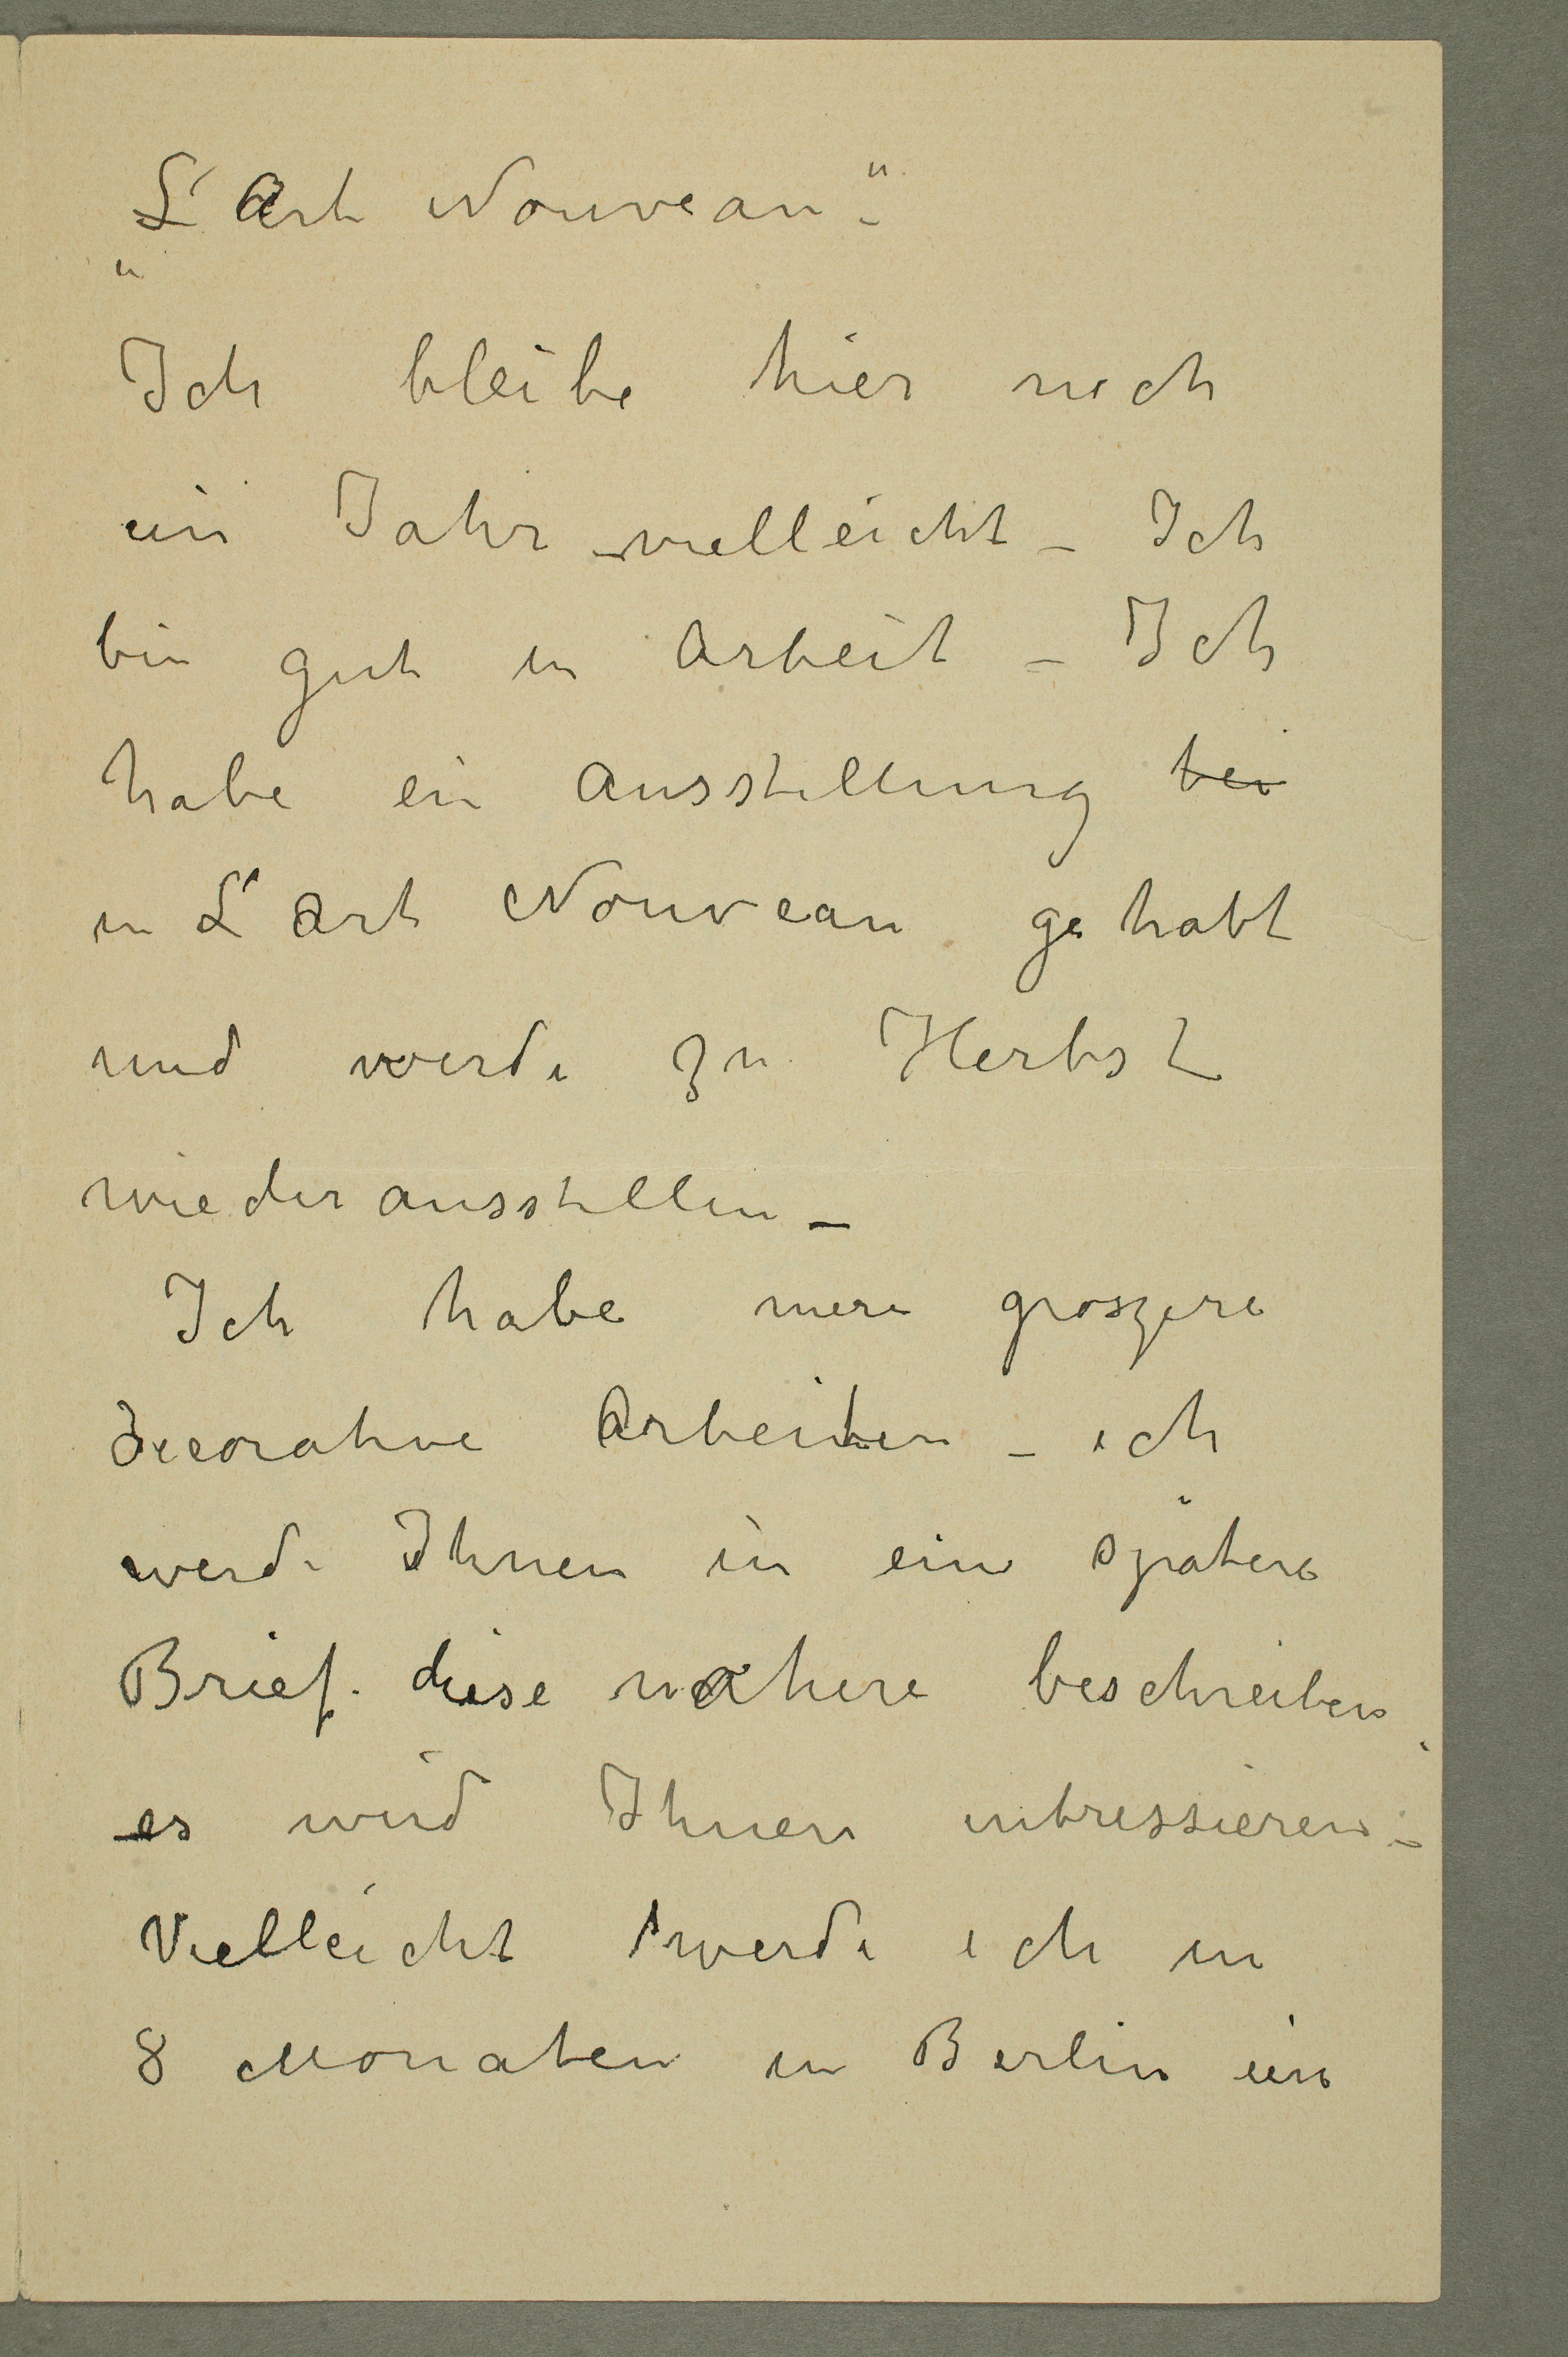 „L'Art Nouveau“ –
Ich bleibe hier noch
ein Jahr vielleicht – Ich
bin gut in Arbeit – Ich
habe ein Ausstellung bei
in L'Art Nouveau gehabt
und werde zu Herbst
wieder ausstellen –
Ich habe mere groszere
Decorative Arbeiten – ich
werde Ihnen in eine spätere
Brief diese nähere beschreiben
es wird Ihnen intressieren –
Vielleicht werde ich in
8 Monaten in Berlin ein